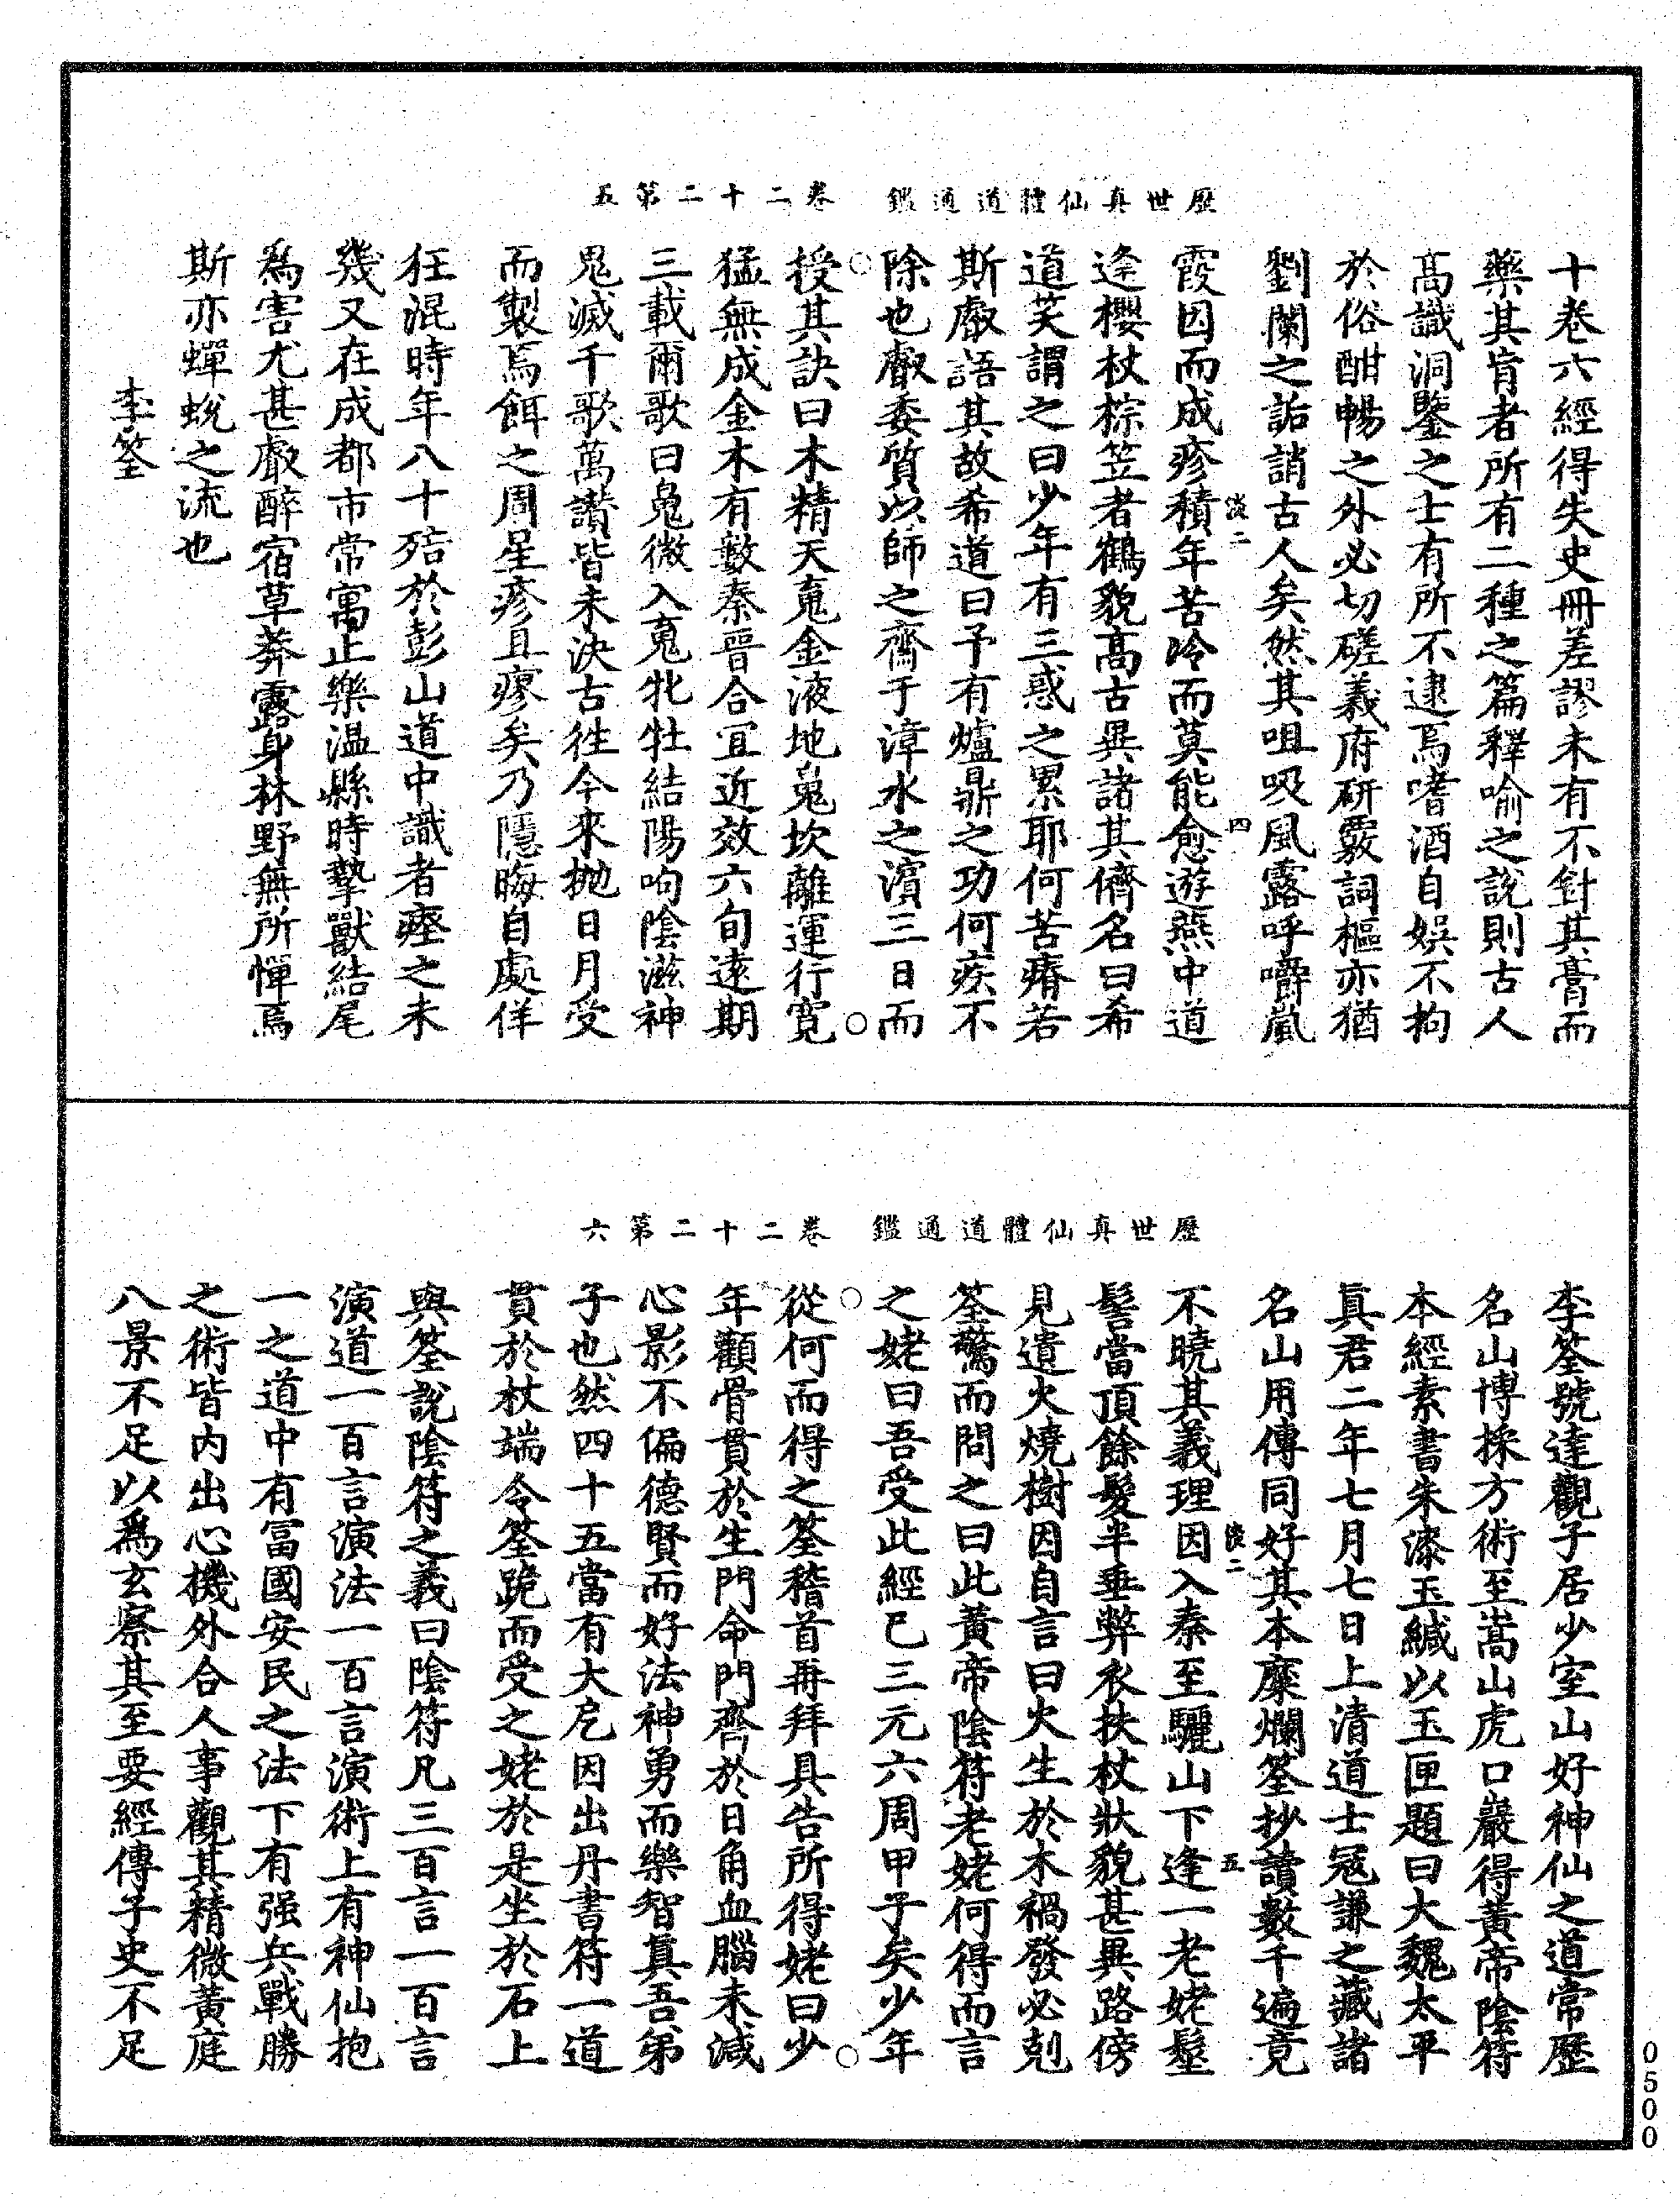 歷世真仙體道通鑑　卷二十二第五
十卷六經得失史冊差謬未有不針其膏而
藥其肓者所有二種之篇釋喻之說則古人
高識洞鑒之士有所不逮焉嗜酒自娛不拘
於俗酣暢之外必切磋義府研覈詞樞亦猶
劉闌之詬誚古人矣然其咀吸風露呼嚼嵐
淡二　四
霞因而成疹積年苦冷而莫能愈遊燕中道
逢櫻杖棕笠者鶴貌高古異諸其儕名曰希
道笑謂之曰少年有三惑之累耶何苦瘠若
斯叡語其故希道曰予有爐鼎之功何疾不
除也叡委質以師之齋于漳水之濱三日而
授其訣曰木精天䰟金液地䰟坎離運行寛
猛無成金木有數秦晉合宜近效六旬遠期
三載爾歌曰䰟微入䰟牝牡結陽呴陰滋神
鬼滅千歌萬讚皆未決古徃今來抛日月受
而製焉餌之周星疹且瘳矣乃隱晦自處佯
狂混時年八十殆於彭山道中識者瘞之未
幾又在成都市常寓止樂温縣時摯獸結尾
爲害尤甚叡醉宿草莽露身林野無所憚焉
斯亦蟬蛻之流也
李筌
歷世真仙體道通鑑　卷二十二第六
李筌號達觀子居少室山好神仙之道常歷
名山博採方術至嵩山虎口巖得黃帝陰符
本經素書朱漆玉緘以玉匣題曰大魏太平
真君二年七月七日上清道士寇謙之藏諸
名山用傳同好其本糜爛筌抄讀數千遍竟
淡二　五
不曉其義理因入秦至驪山下逢一老姥髽
髻當頂餘髮半垂弊衣扶杖狀貌甚異路傍
見遺火燒樹因自言曰火生於木禍發必剋
筌驚而問之曰此黃帝陰符老姥何得而言
之姥曰吾受此經已三元六周甲子矣少年
從何而得之筌稽首再拜具告所得姥曰少
年顴骨貫於生門命門齊於日角血腦未減
心影不偏德賢而好法神勇而樂智真吾弟
子也然四十五當有大戹因出丹書符一道
貫於杖端令筌跪而受之姥於是坐於石上
與筌說陰符之義曰陰符凡三百言一百言
演道一百言演法一百言演術上有神仙抱
一之道中有富國安民之法下有强兵戰勝
之術皆内出心機外合人事觀其精微黃庭
八景不足以爲玄察其至要經傳子史不足
0500